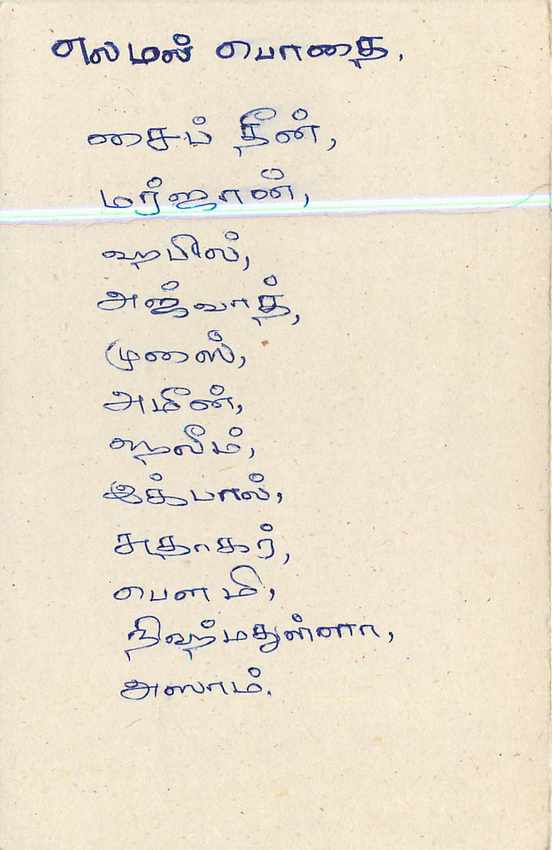 எலமல் பொதை.
சைப் தீன்,
மர்ஜான்,
ஹபில்,
அஜ்வாத்,
முனாஸ்,
அமீன்,
ஹலீம்,
இக்பால்,
சுதாகர்,
பௌமி,
நிஹ்மதுள்ளா,
அஸாம்.